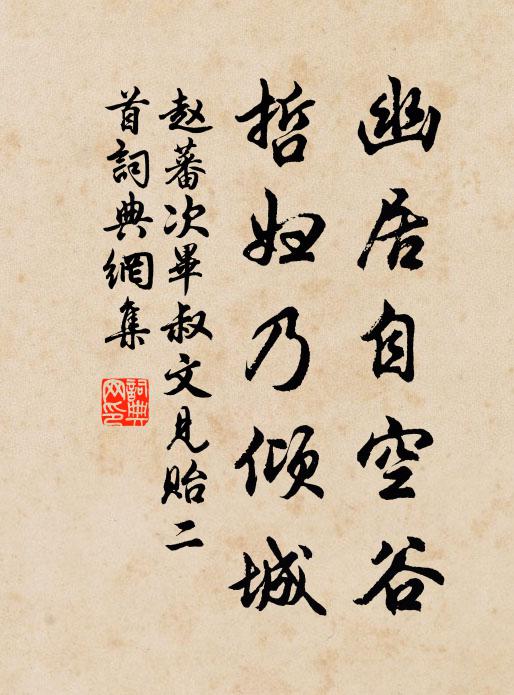 幽居自空谷
哲妇乃倾城
赵蕃次畢叔文見贻二
首詞典網集
詞典网印